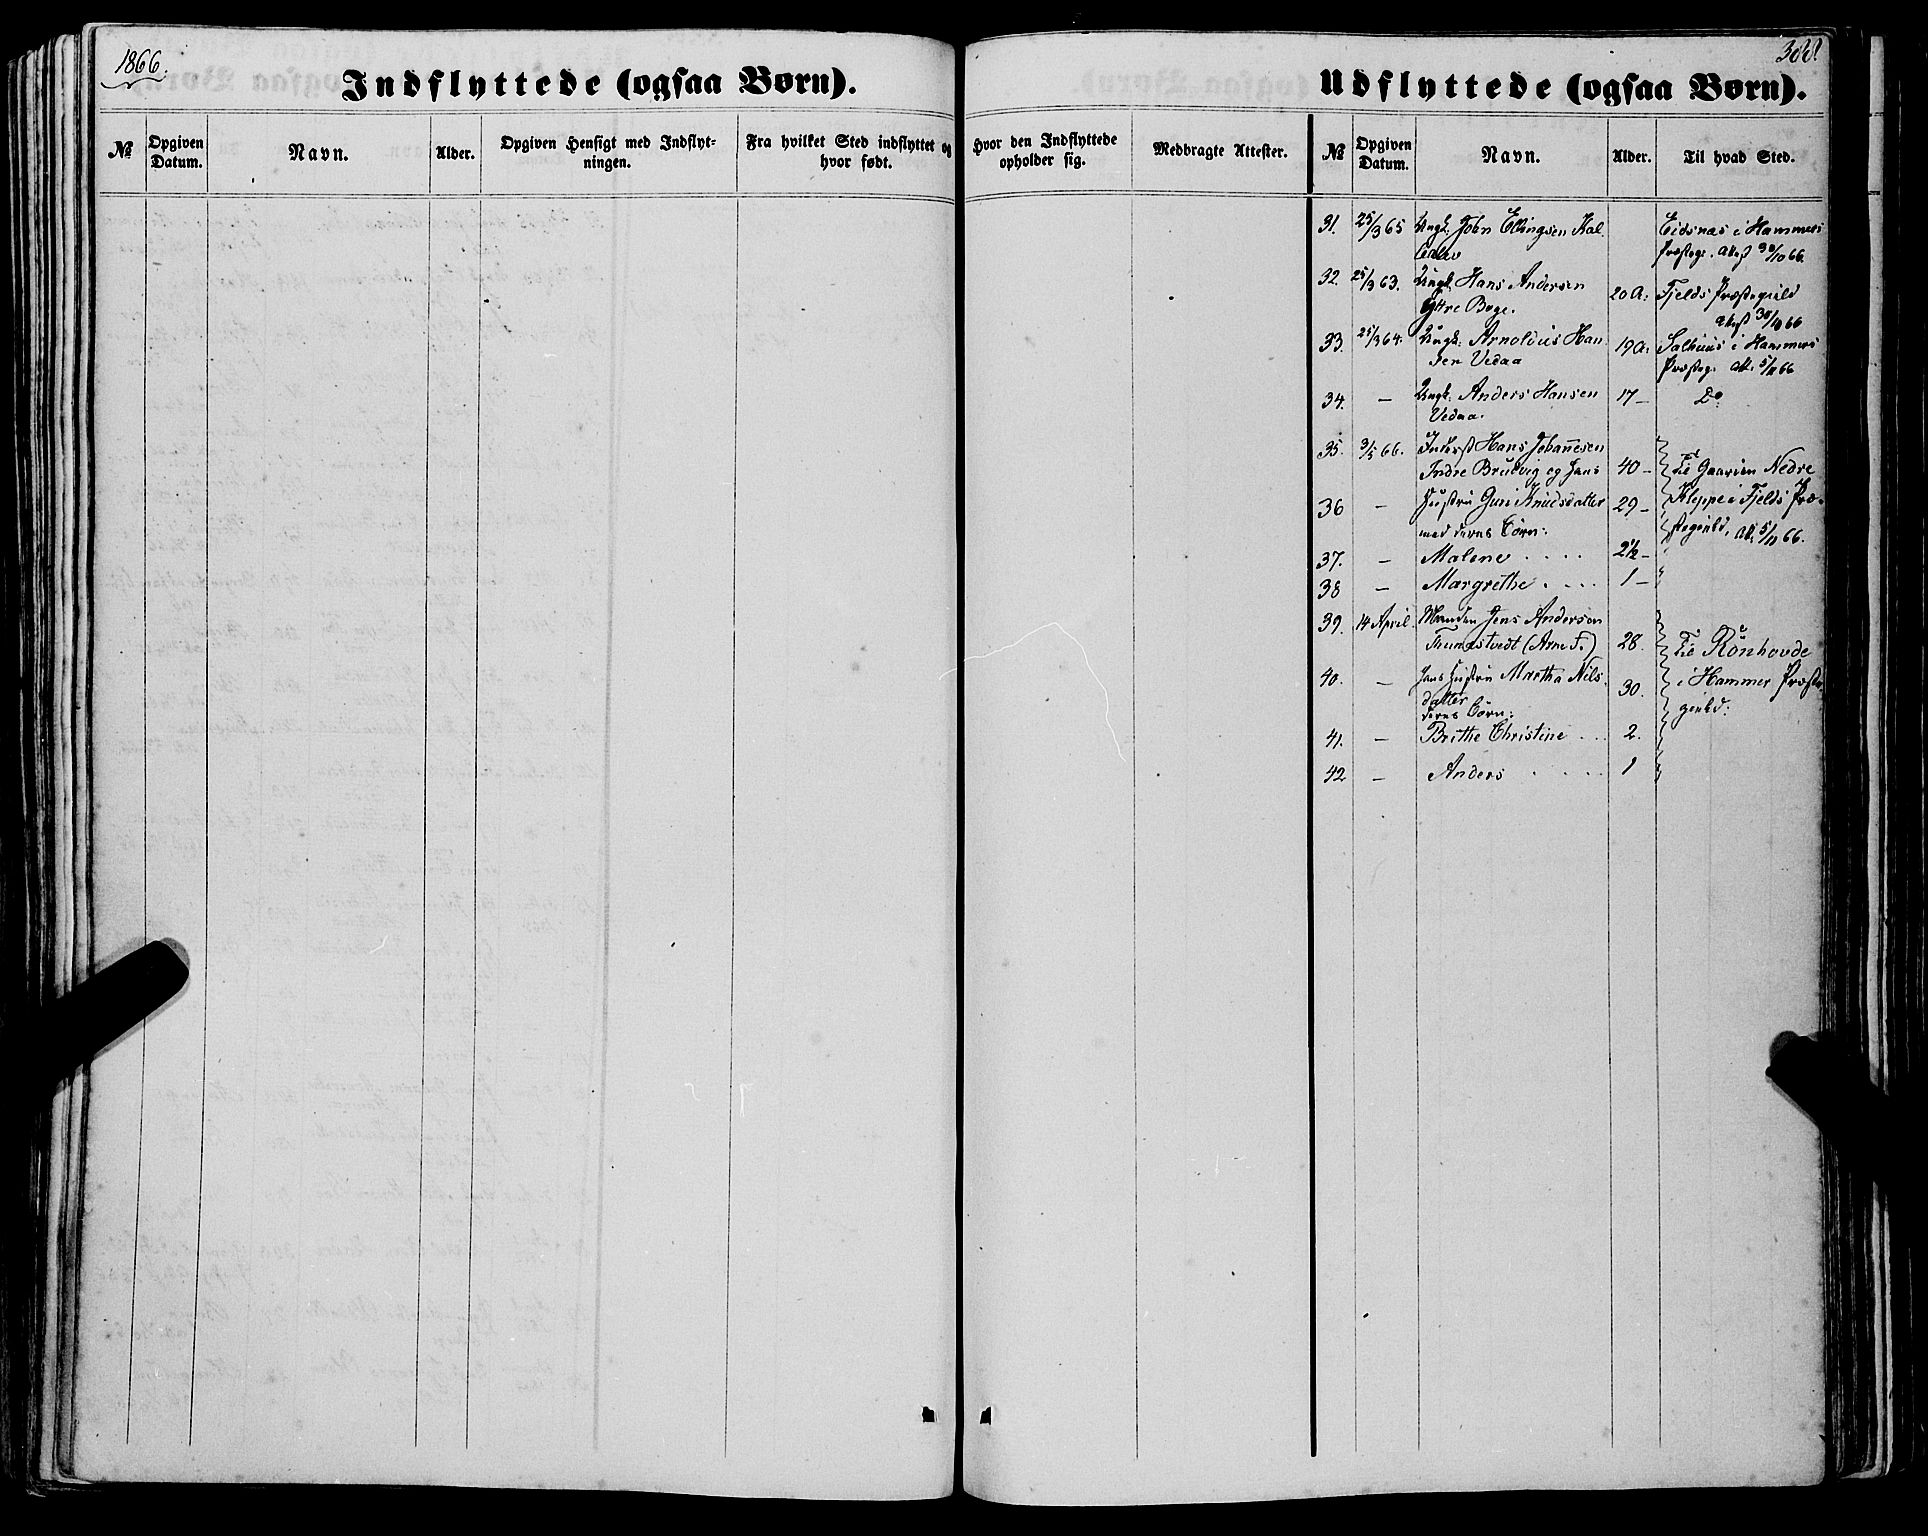 1866.
Indflyttede (ogsaa Børn).
№
Opgiven Datum.
Navn.
Alder.
Opgiven Hensigt med Indflyt-
ningen.
Fra hvilket Sted indflyttet og
hvor født.
388
Udflyttede (ogsaa Børn).
Hvor den Indflyttede
opholder sig.
Medbragte Attester.
№
Opgiven Datum.
Navn.
Alder.
Til hvad Sted.
31. 25/3 65 Ungk. John Ellingsen Kal Eidsnæs i Hammers
Præsteg. attest 30/10 66.
32. 25/3 63. Ungk. Hans Andersen 20 A: Fjelds Præstegield
Yttre Boge. attest 30/10 66
33. 25/3 64. Ungk. Arnoldus Han 19 A: Salhuus i Hammers
sen Vedaa Præsteg: att. 5/11 66
34. — Ungk. Anders Hansen 17 — Do
Vedaa.
35. 3/5 66. Inderst Hans Johannesen
Indre Bruvig og hans 40 — til Gaarden Nedre
36 — Hustru Guri Knudsdatter 29 — Kleppe i Fjelds Præ-
med deres Börn: stegield, att. 5/11 66.
37. — Malene . . . . 2½ —
38 — Margrethe . . . . 1 —
39. 14 April. Manden Jens Anderson
(Arne F.) 28. til Rönhovde
40. — hans Hustru Martha Nils- 30. i Hammer Præste
datter gield:
deres Börn:
41. — Brithe Christine . . . 2.
42 — Anders . . . . 1